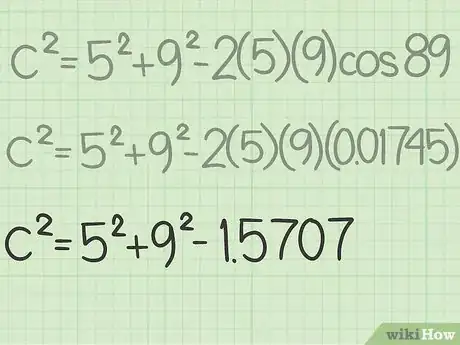 c²=5²+9²-2(5)(9)cos89
c²=5²+9²-2(5)(9)(0.01745)
c²=5²+9²-1.5707
wikiHow